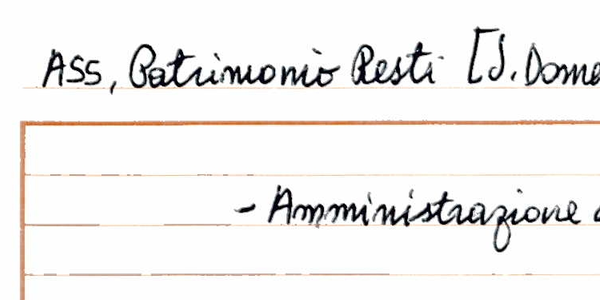 ASS, Patrimonio Resti [S. Dome
- Amministrazione